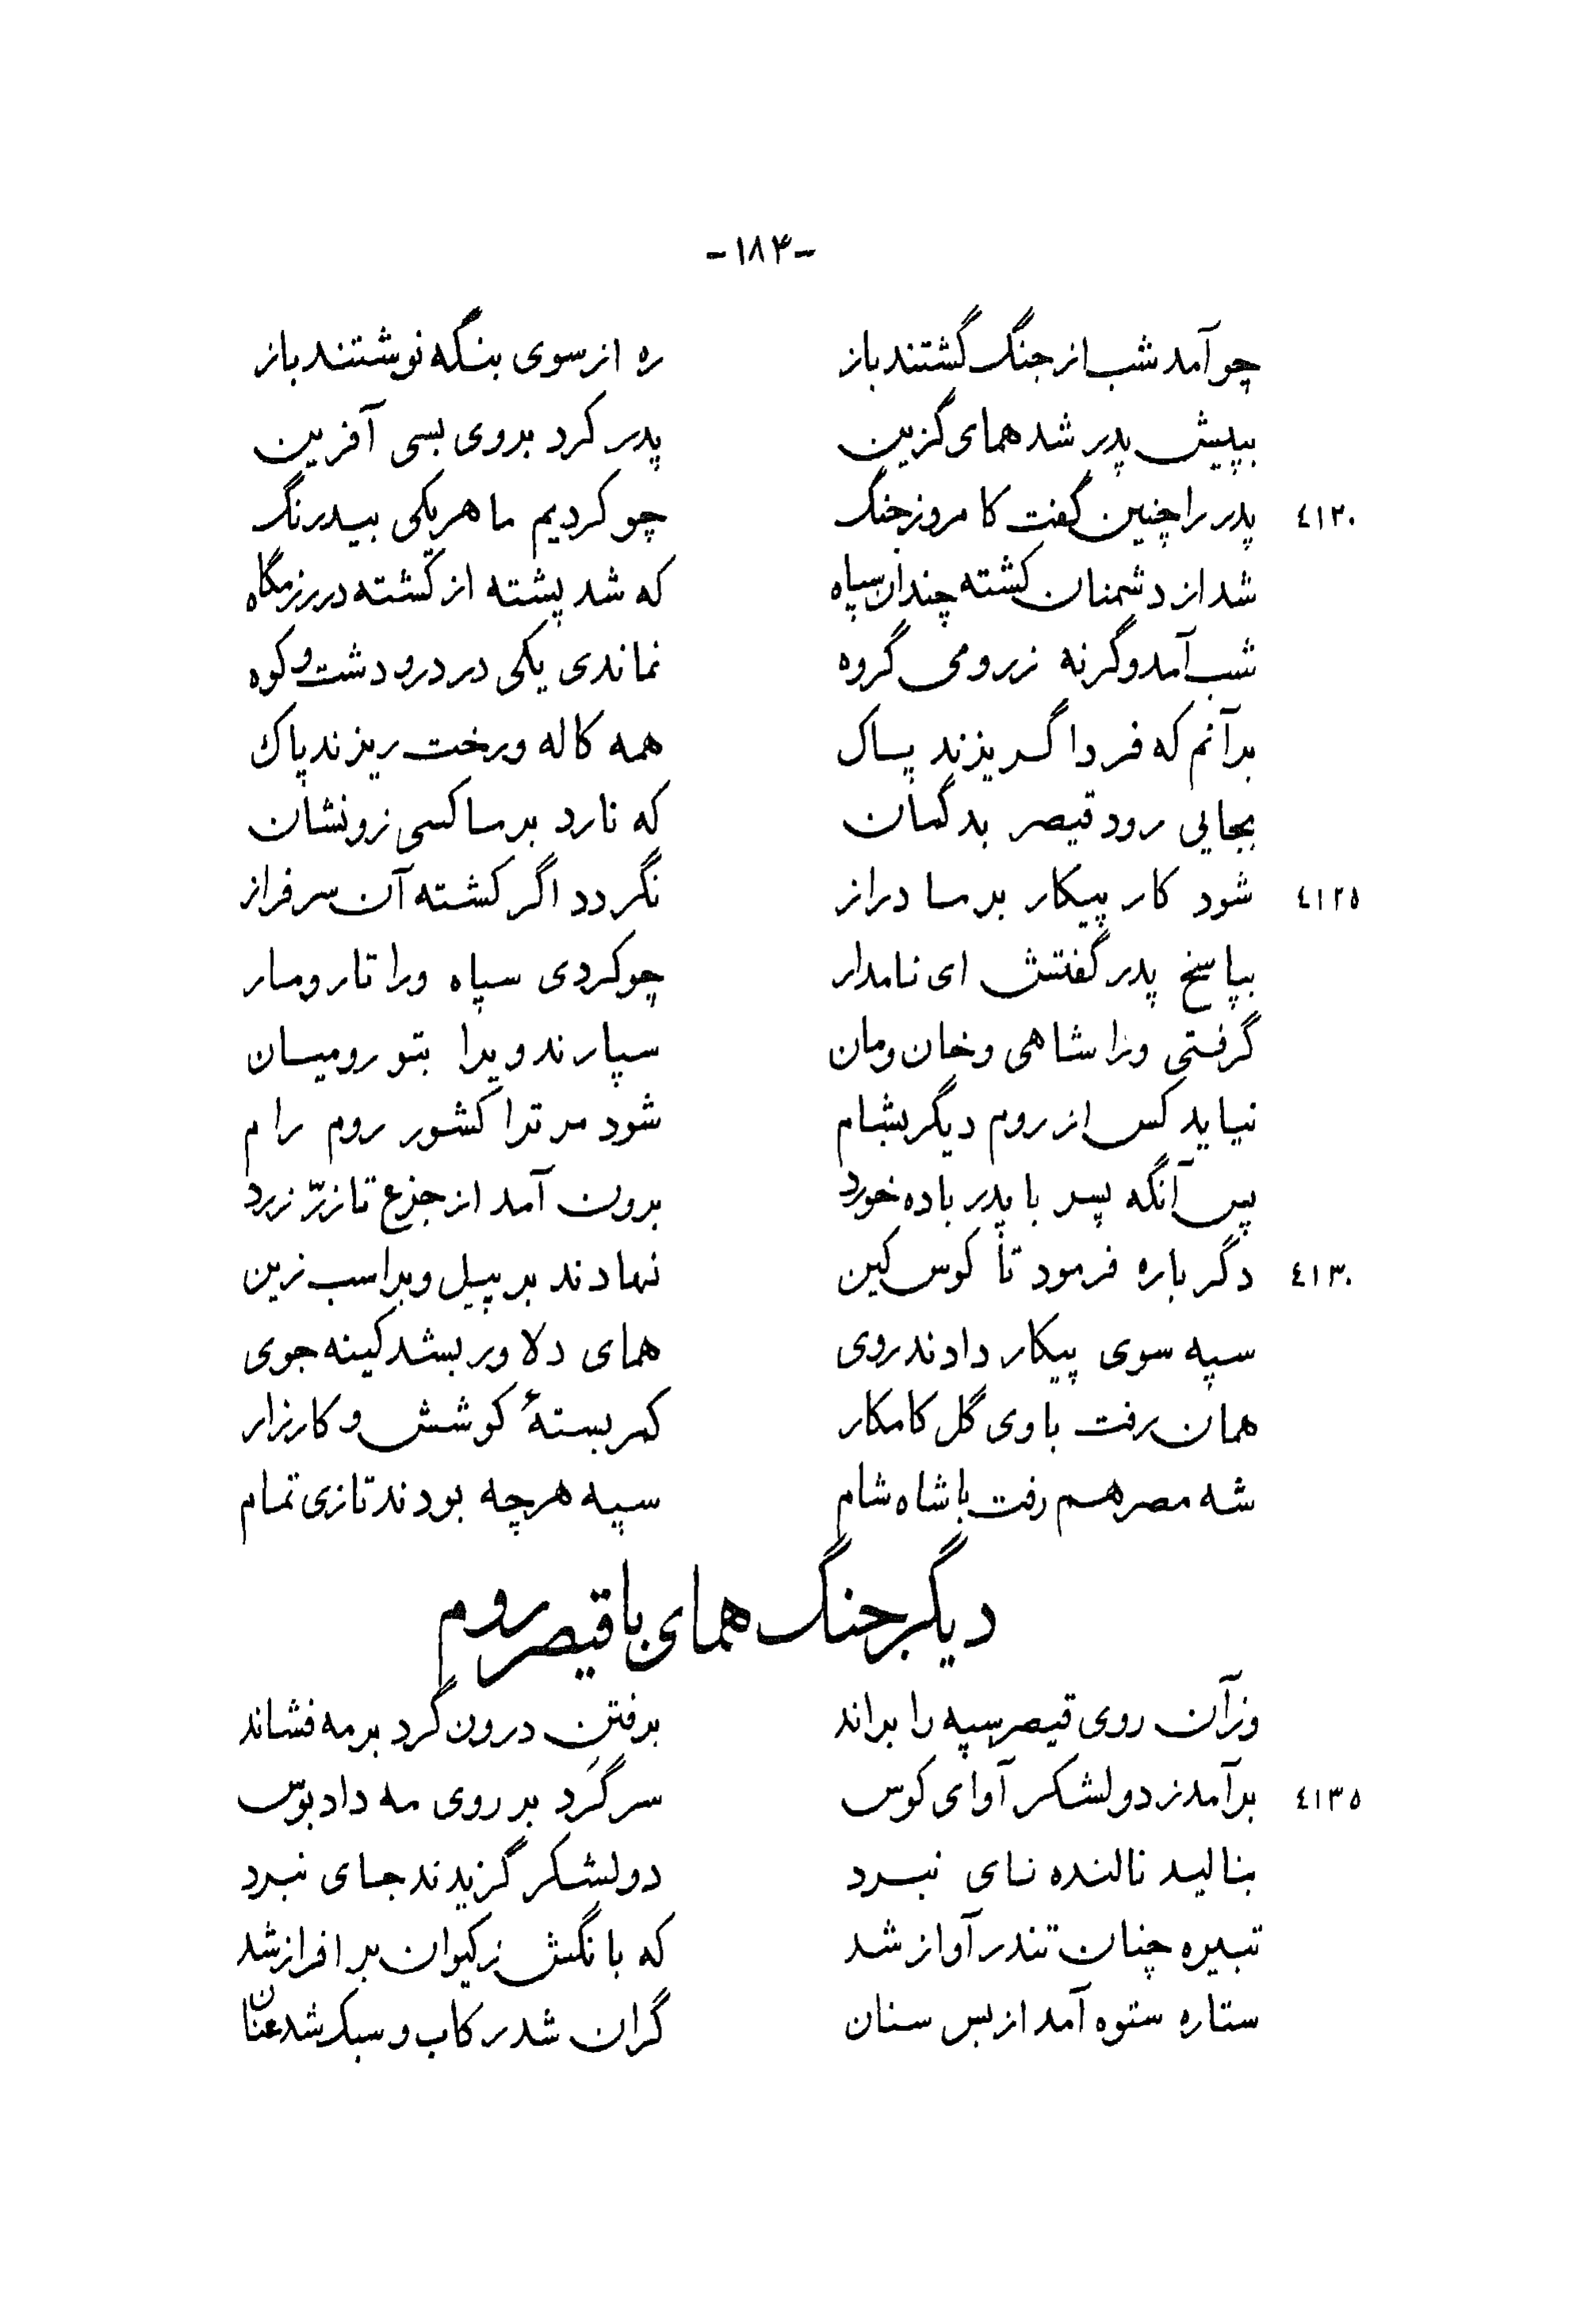 -۱۸۳-
چو آمد شب از جنگ گشتند باز ره از سوی بنگه نوشتند باز
بپیش پدر شد همای گزین پدر کرد بروی بسی آفرین
٤۱۲۰ پدر را چنین گفت کامروز جنگ چو کردیم ما هریکی بیدرنگ
شد از دشمنان کشته چندان سپاه که شد پشته از کشته در رزمگاه
شب آمد وگرنه ز رومی گروه نماندی یکی در درو دشت و کوه
برآنم که فردا گریزند پاک همه کاله و رخت ریزند پاک
بجایی رود قیصر بدگمان که نارد بر ما کسی زو نشان
٤۱۲۵ شود کار پیکار بر ما دراز نگردد اگر کشته آن سرفراز
بپاسخ پدر گفتش ای نامدار چو کردی سپاه ورا تار و مار
گرفتی ورا شاهی و خان و مان سپارند ویرا بتو رومیان
نیاید کس از روم دیگر بشام شود مر ترا کشور روم رام
پس آنگه پسر با پدر باده خورد برون آمد از جزع تا زرّ زرد
٤۱۳۰ دگر باره فرمود تا کوس کین نهادند بر پیل و بر اسب زین
سپه سوی پیکار دادند روی همای دلاور بشد کینه جوی
همان رفت با وی گل کامکار کمر بستهٔ کوشش و کارزار
شه مصر هم رفت با شاه شام سپه هرچه بودند تازی تمام
دیگر جنگ همای با قیصر روم
وزآن روی قیصر سپه را براند برفتن درون گرد بر مه فشاند
٤۱۳۵ برآمد ز دو لشکر آوای کوس سر گَرد بر روی مه داد بوس
بنالید نالنده نای نبرد دو لشکر گزیدند جای نبرد
تبیره چنان تندر آواز شد که بانگش ز کیوان بر افراز شد
ستاره ستوه آمد از بس سنان گران شد رکاب و سبک شد عنان